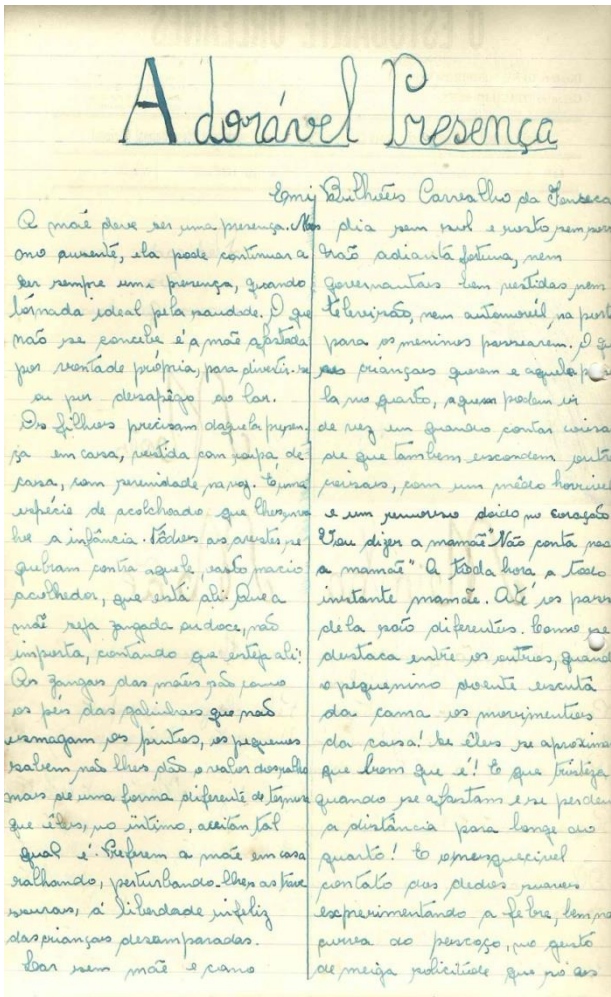 Adorável Presença
Emi Bulhões Carvalho da Fonseca
A mãe deve ser uma presença. Mes
mo ausente, ela pode continuar a
ser sempre uma presença, quando
tornada ideal pela saudade. O que
não se concebe é a mãe afastada
por vontade própria, para divertir-se
ou por desapêgo ao lar.
Os filhos precisam daquela presen
ça em casa, vestida com roupa de
casa, com serenidade na voz. É uma
espécie de acolchoado que lhes
a infância. Tôdas as arestas se
quebram contra aquele vasto macio
acolhedor, que está ali. Que a
mãe seja zangada ou doce, não
importa, contando que esteja ali!
As zangas das mães são como
os pés das galinhas que não
esmagam os pintos, os pequenos
sabem não lhes dão o valor de ralho
mais de uma forma diferente de ternura
que êles, no íntimo, aceitam tal
qual é. Preferem a mãe em casa
ralhando, perturbando-lhes as trave
suras, á liberdade infeliz
das crianças desamparadas.
Lar sem mãe e como
dia sem sol e rosto sem
Não adianta fortuna, nem
governantais bem vestidas, nem
televisão, nem automovél, na port
para os meninos passearem. O q
as crianças querem e aquela
la no quarto, a quem podem ir
de vez em quando contar coisa
de que tambem escondem outr
coisas, com um mêdo horrivel
e um remorso doido no coração
Vou dizer a mamãe "Não conta
a mamãe" A tôda hora a todo
instante mamãe. Até os pass
dela são diferentes. Como se
destaca entre os outros, quand
o pequenino doente escuta
da cama os movimentos
da casa! Se êles se aproxima
que bom que é! E que tristeza
quando se afastam e se perdem
a distância para longe do
quarto! E o inesquecivel
contato dos dedos suaves
experimentando a febre, bem na
curva do pescoço, no gesto
de meiga solicitude que só as